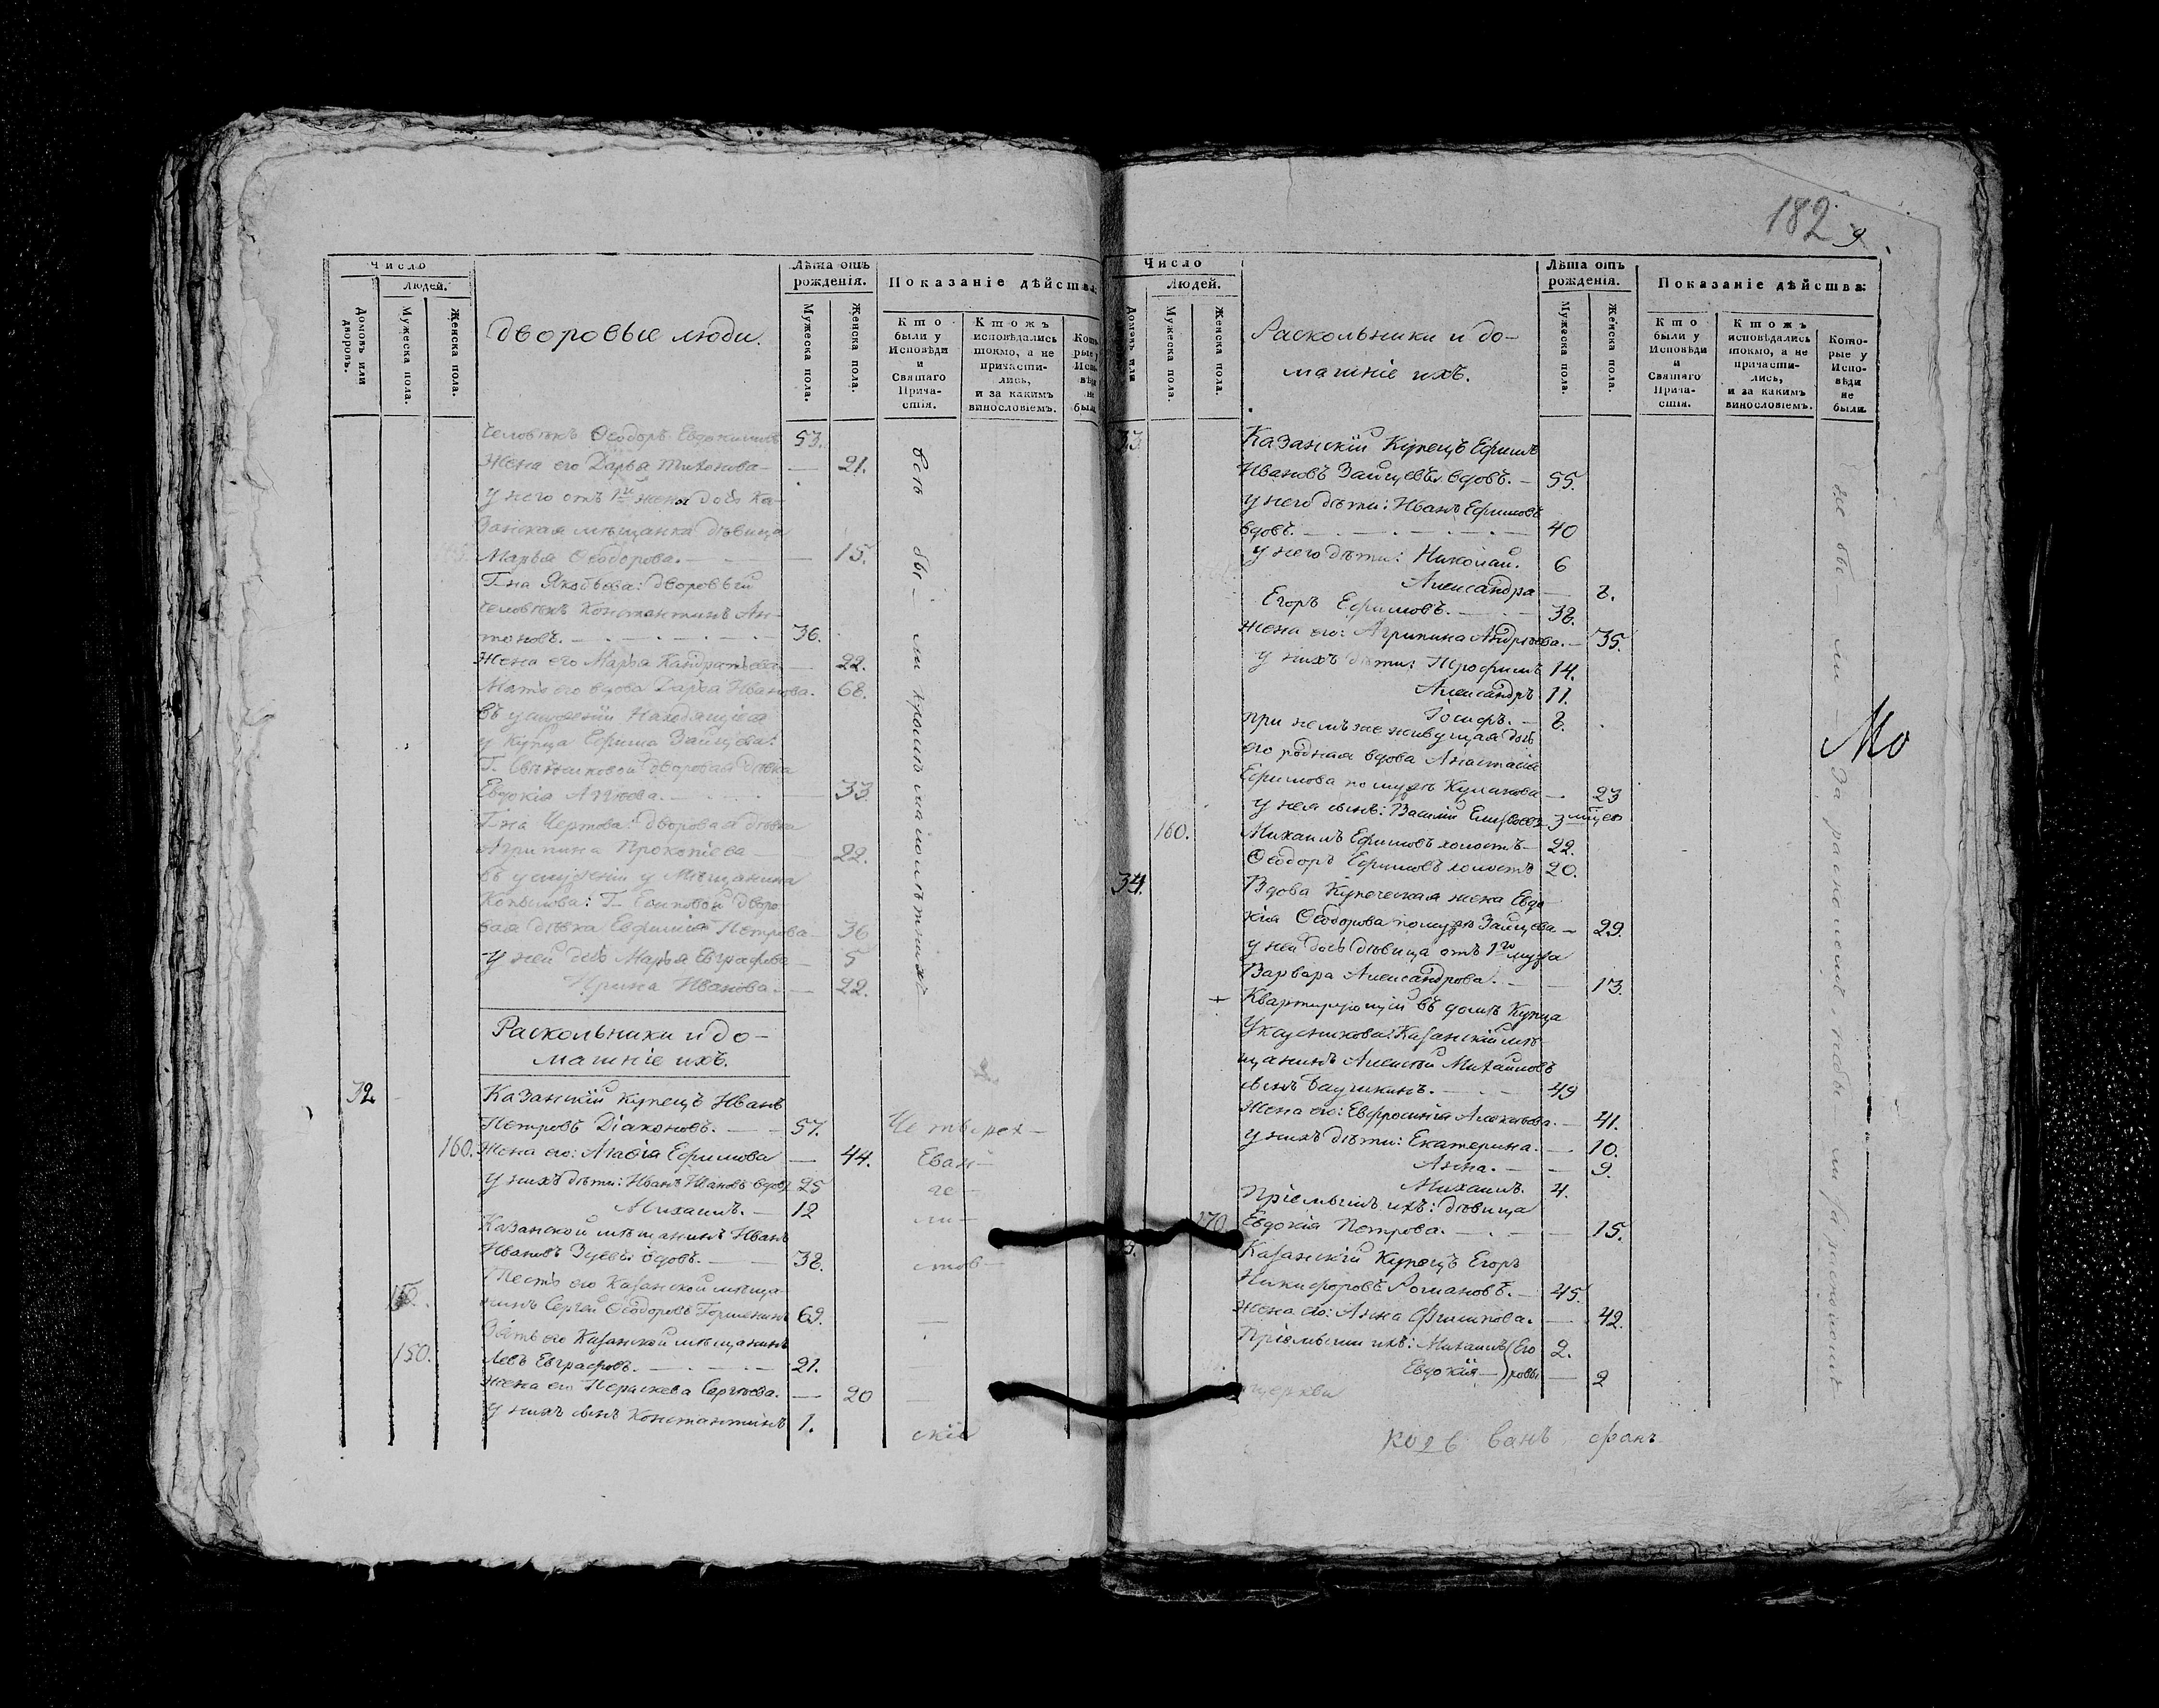 Число
Людей.
Домовъ или дворовъ.
Мужеска пола.
Женска пола.
Дворовые люди.
Лѣта отъ рожденія.
Мужеска пола.
Женска пола.
Показаніе дѣйства:
Кто были у Исповѣди и Святаго Причастія.
Ктожъ исповѣдались токмо, а не причастились, и за какимъ винословіемъ.
Человѣкъ Ѳеодоръ Евдокимовъ 53.
Жена его Дарья Тихонова — 21.
У него отъ 1й жены дочь Ка-
занская мѣщанка дѣвица
Марья Ѳеодорова. — 15.
Г-на Яковлева: дворовый
человѣкъ Константинъ Ан-
тоновъ. — 36.
Жена его Марья Кандратьева — 22.
Мать его вдова Дарья Иванова. 68.
Въ услуженіи находящіеся
у Купца Ефима Зайцева:
дворовая дѣвка
Евдокія — 33
Г-на Чертова: дворовая дѣвка
Агрипина Прокопіева — 22.
въ услуженіи у Мѣщанина
Копылова: Г- Есиповой дворо
вая дѣвка Евфимія Петрова — 36
У ней дочь Марья Евграфова — 5
Ирина Иванова — 22.
Раскольники и до-
машніе ихъ.
32. Казанскій купецъ Иванъ
Петровъ Діаконовъ. — 57.
160. Жена его: Агафія Ефимова — 44.
У нихъ дѣти: Иванъ Ивановъ вдовъ 25
Михаилъ. — 12
Казанской мѣщанинъ Иванъ
Ивановъ вдовъ. — 38.
Тесть его Казанской мѣща-
нинъ Сергей Ѳеодоровъ 69.
Зять его Казанской мѣщанинъ
150. Левъ Евграфовъ. — 21.
Жена его Параскева Сергѣева. — 20
У нихъ сынъ Константинъ 1.
всѣ бы- ли кромѣ малолѣтнихъ
Четырех-
Еван-
ге-
ли-
стов-
скіе
182
9
Число
Людей.
Домовъ или
Мужеска пола.
Женска пола.
Раскольники и до-
машніе ихъ.
Лѣта отъ рожденія.
Мужеска пола.
Женска пола.
Показаніе дѣйства:
Кто были у Исповѣди и Святаго Причастія.
Ктожъ исповѣдались токмо, а не причастились, и за какимъ винословіемъ.
Которые у Исповѣди не были.
33. Казанскій Купецъ Ефимъ
Ивановъ Зайцевъ вдовъ. — 55.
У него дѣти: Иванъ Ефимовъ
вдовъ. — 40
У него дѣти: Николай. 6
Александра — 8.
Егоръ Ефимовъ. — 38.
Жена его: Агрипина Андрѣева. — 35.
У нихъ дѣти: Трофимъ 14.
Александръ 11.
Іосифъ. — 8.
При немъ же живущая дочь
его родная вдова Анастасія
Ефимова по мужѣ Куликова — 23
У нея сынъ: Василій 3 мѣсяц
160. Михаилъ Ефимовъ холостъ — 22.
Ѳеодоръ Ефимовъ холостъ 20.
34. Вдова Купеческая жена Евдо
кія Ѳеодорова по мужѣ Зайцева — 29.
У ней дочь дѣвица отъ 1го мужа
Варвара Александрова. — 13.
+ Квартирующій въ домѣ Купца
Казанскій мѣ
щанинъ Алексѣй Михайловъ
сынъ — 49
Жена его: Евфросинія Алексѣева. — 41.
У нихъ дѣти: Екатерина. — 10.
Анна. — 9.
Михаилъ. 4.
Пріемышъ ихъ: дѣвица
170. Евдокія Петрова. — 15.
Казанскій Купецъ Егоръ
Никифоровъ Романовъ. — 45.
Жена его: Анна Филипова. — 42.
Пріемыши ихъ: Михаилъ Его 2.
Евдокія ровы — 2
не бы- ли — за расколомъ
Мо
церкви